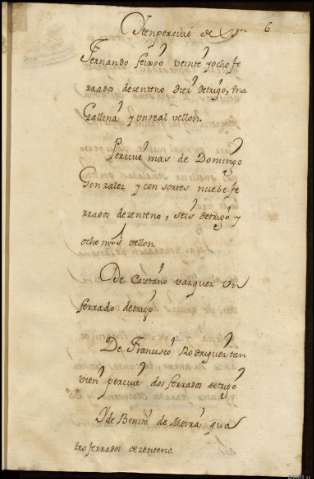 6
Iten percive de
Fernando feixoo veinte y ocho fe
rrados de zenteno diez de trigo, una
Gallina y un real vellon.
Percive mas de Domingo
Gonzalez y consortes nuebe fe
rrados de zenteno, seis de trigo y
ocho mrs vellon
De Caetano vazquez un
ferrado de trigo
De Francisco Rodriguez tan
vien percive dos ferrados de trigo
Y de Benito de Meira qua
tro ferrados de zenteno